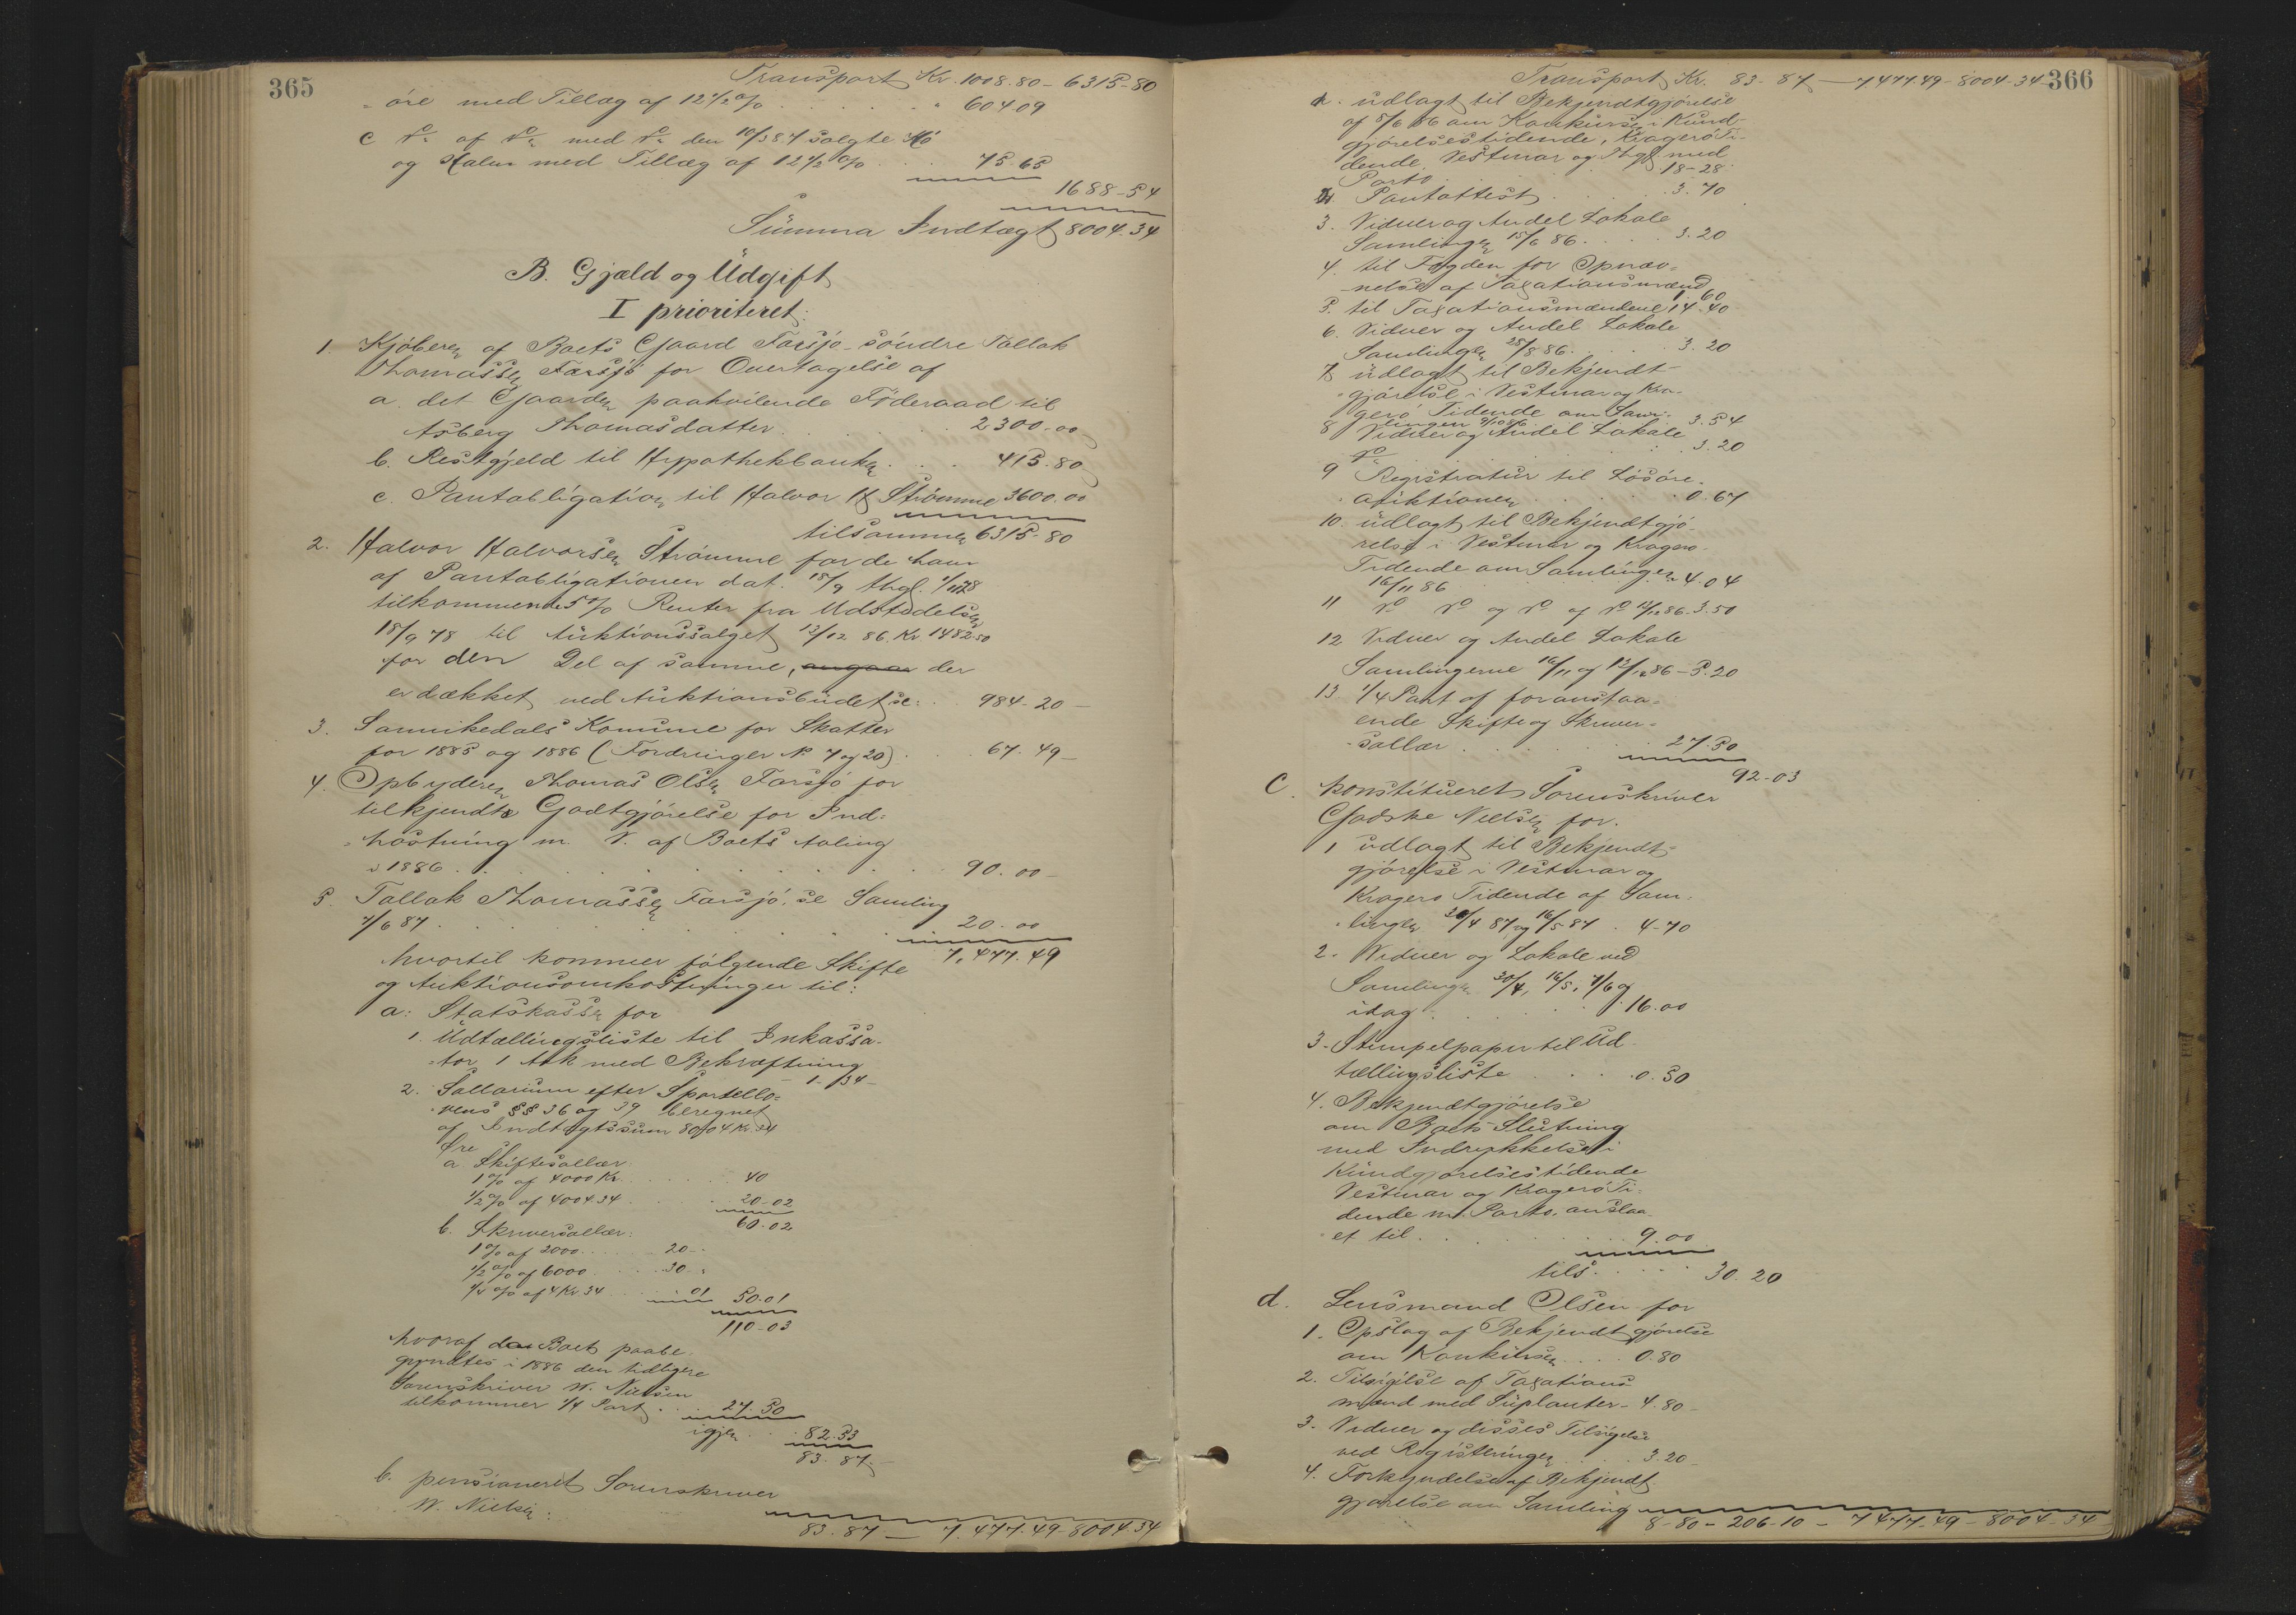 365
Transport Kr. 1008.80 - 6315-80
øre med Tillæg af 12 1/2 % . . . . . . " 604 09
c do af do med do den 10/3 87 solgte Hø
og Halm med Tillæg af 12 1/2 % . . 75.65
1688-54
Summa Indtægt 8004.34
B. Gjæld og Udgift
I prioriteret:
1. Kjøberen af Boets Gaard Farsjø søndre Tallak
Thomassen Farsjø for Overtagelse af
a. det Gaarden paahvilende Føderaad til
Asberg Thomasdatter . . . . . 2300-00
b. Restgjeld til Hypothekbanken . . . 415.80
c. Pantobligation til Halvor H. Strømme 3600.00
tilsammen 6315-80
2. Halvor Halvorsen Strømme for de ham
af Pantobligationen dat. 18/9 thgl. 1/11 78
tilkommende 5 % Renter fra Udstedelsen
18/9 78 til Auktionssalget 13/12 86 Kr. 1482.50
for den Del af samme, angaar der
er dækket ved Auktionsbudet se: . . 984-20 -
3. Sannikedals Komune for Skatter
for 1885 og 1886 (Fordringer No 7 og 20) . . 67.49 -
4. Opbyderen Thomas Olsen Farsjø for
tilkjendte Godtgjørelse for Ind=
høstning m. V. af Boets Avling
i 1886 . . . . . . . . . 90.00 -
5. Tallak Thomassen Farsjø, se Samling
7/6 87 . . . . . . . . . 20.00
7,477.49
hvortil kommer følgende Skifte
og Auktionsomkostninger til:
a: Statskassen for
1. Udtællingsliste til Inkassa-
tor 1 Ark med Bekræftning
- 1-34 -
2. Sallarium efter Sportello=
vens §§ 36 og 39 beregnet
af Indtægtssum 8004 Kr. 34
Øre
a. Skiftesallær
1 % af 4000 Kr. . . . . . 40
1/2 % af 4004 34 . . . . 20-02
60-02
b. Skriversallær:
1 % af 2000 . . . . . 20-
1/2 % af 6000 . . . . 30 "
1/4 % af 4 Kr 34 . . . 01 50.01
110-03
hvoraf da Boet paabe-
gyndtes i 1886 den tidligere
Sorenskriver W. Nielsen
tilkommer 1/4 Part . . 27.50
igjen . . . 82.53
83.87 -
b. pensioneret Sorenskriver
W. Nielsen:
83.87 — 7,477.49 - 8004.34
366
Transport Kr. 83-87 — 7,477.49 - 8004-34
1. udlagt til Bekjendtgjørelse
af 5/6 86 om Konkursen i Kund-
gjørelsestidende, Kragerø Ti-
dende, Vestmar og Thgl. med
Porto . . . . . 18-28
2. Pantattest . . . . 3.70
3. Vidner og Andel Lokale
Samlingen 15/6 86 . . . 3.20
4. til Fogden for Opnæv=
nelse af Taxationsmænd
1.60
5. til Taxationsmændene 14.40
6. Vidner og Andel Lokale
Samlingen 25/8 86 . . . 3.20
7. udlagt til Bekjendt-
gjørelse i Vestmar og Kra-
gerø Tidende om Sam-
lingen 9/10 86 . . 3.54
8 Vidner og Andel Lokale
do . . . . . 3.20
9 Registratur til Løsøre-
auktionen . . . . . 0.67
10. udlagt til Bekjendtgjø-
relse i Vestmar og Kragerø
Tidende om Samlingen 4.04
16/11 86
11 do do og do af do 13/12 86. 3.50
12 Vidner og Andel Lokale
Samlingerne 16/11 og 13/12 86 - 5.20
13 1/4 Part af foranstaa=
ende Skifte og Skriver-
sallær . . . . . . 27.50
92-03
C. konstitueret Sorenskriver
Godske Nielsen for.
1 udlagt til Bekjendt-
gjørelse i Vestmar og
Kragerø Tidende af Sam-
lingen 20/4 87 og 16/5 87 . 4-70
2. Vidner og Lokale ved
Samlingen 20/4, 16/5, 7/6 og
idag . . . . . 16.00
3. Stempelpapir til Ud-
tællingsliste . . . . 0.50
4. Bekjendtgjørelse
om Boets Slutning
med Indrykkelse i
Kundgjørelsestidende
Vestmar og Kragerø Ti-
dende m. Porto, anslaa-
et til . . . . . . 9.00
tils. . . . . 30.20
d. Lensmand Olsen for
1. Opslag af Bekjendtgjørelse
om Konkursen . . . . 0.80
2. Tilsigelse af Taxations-
mænd med Suplanter - 4.80 -
3. Vidner og disses Tilsigelse
ved Registreringen . . . 3.20 -
4. Forkyndelse af Bekjendt-
gjørelse om Samling
8-80 - 206-10 - 7477.49 - 8004-34